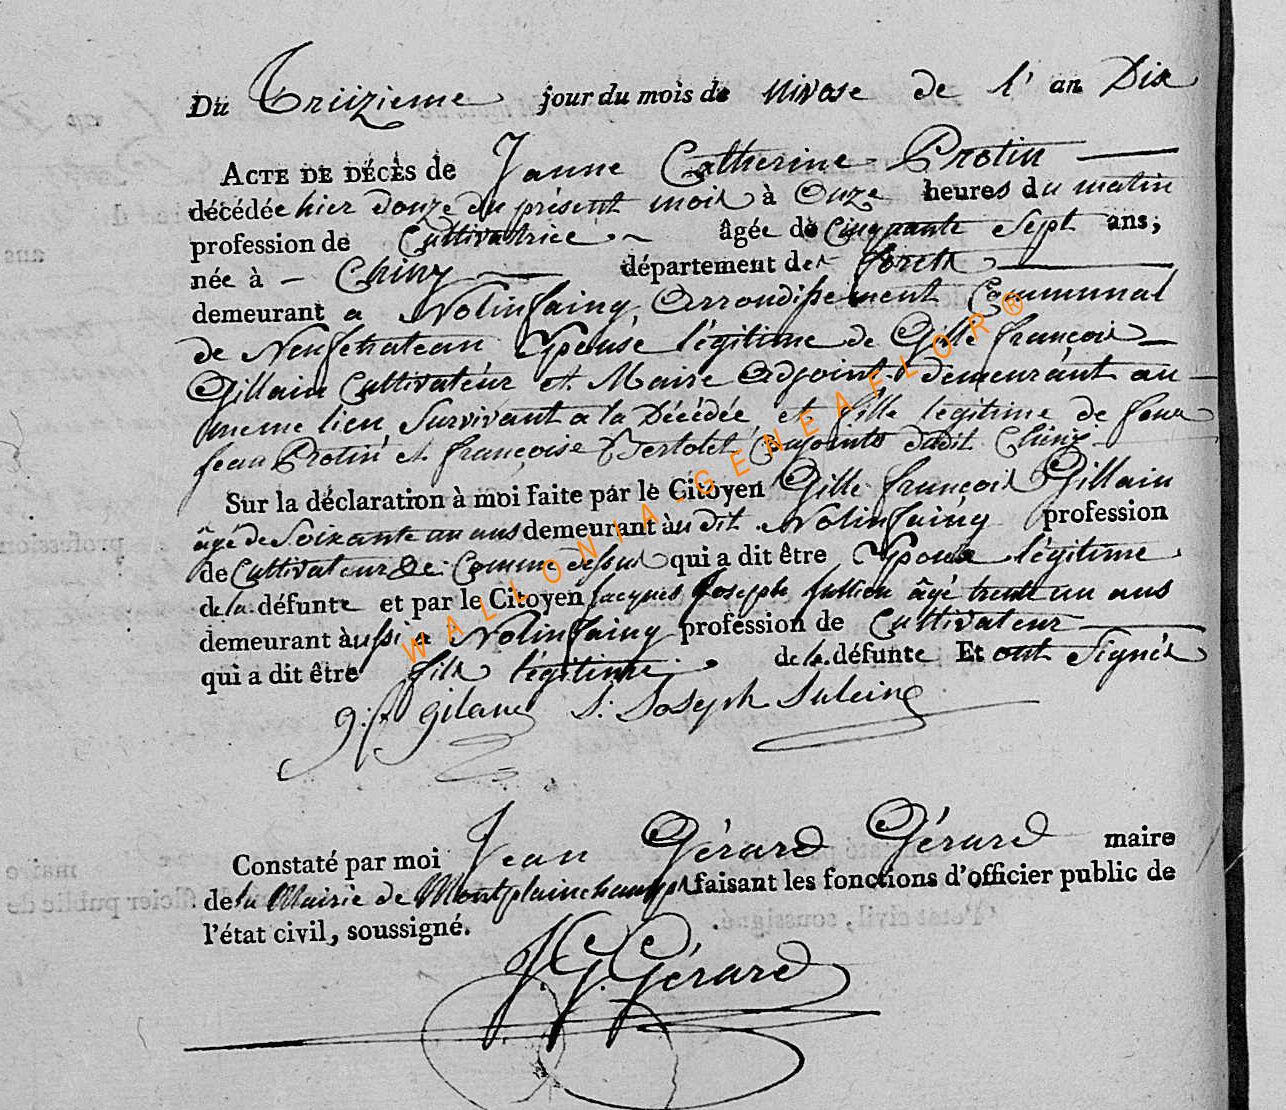 Du Treizieme jour du mois de Nivose de l'an Dix
ACTE DE DÉCÈS de Janne Catherine Protin
décédée hier douze du présent mois à Onze heures du matin
profession de Cultivatrice âgée de Cinquante Sept ans,
née à Chiny département des forets
demeurant a Nolinfaing, Arrondissement Communal
de Neufchateau Epouse légitime de Gille françois
Gillain Cultivateur et Maire Adjoint demeurant au
meme lieu Survivant a la Décédée et fille légitime de feux
Jean Protin et françoise Bertolet Conjoints dudit Chiny
Sur la déclaration à moi faite par le Citoyen Gille françois Gillain
âgé de Soixante un ans demeurant audit Nolinfaing profession
de Cultivateur &c. Comme dessus qui a dit être Epoux légitime
de la défunte et par le Citoyen Jacques Joseph Jullien âgé trente un ans
demeurant aussi a Nolinfaing profession de Cultivateur
qui a dit être fils légitime de la défunte Et ont Signés
g: f Gilane J: Joseph Sulein
Constaté par moi Jean Gérard Gérard maire
de la Mairie de Montplainchamps faisant les fonctions d'officier public de
l'état civil, soussigné.
J. G. Gérard
WALLONIA-GENEAFLOR®